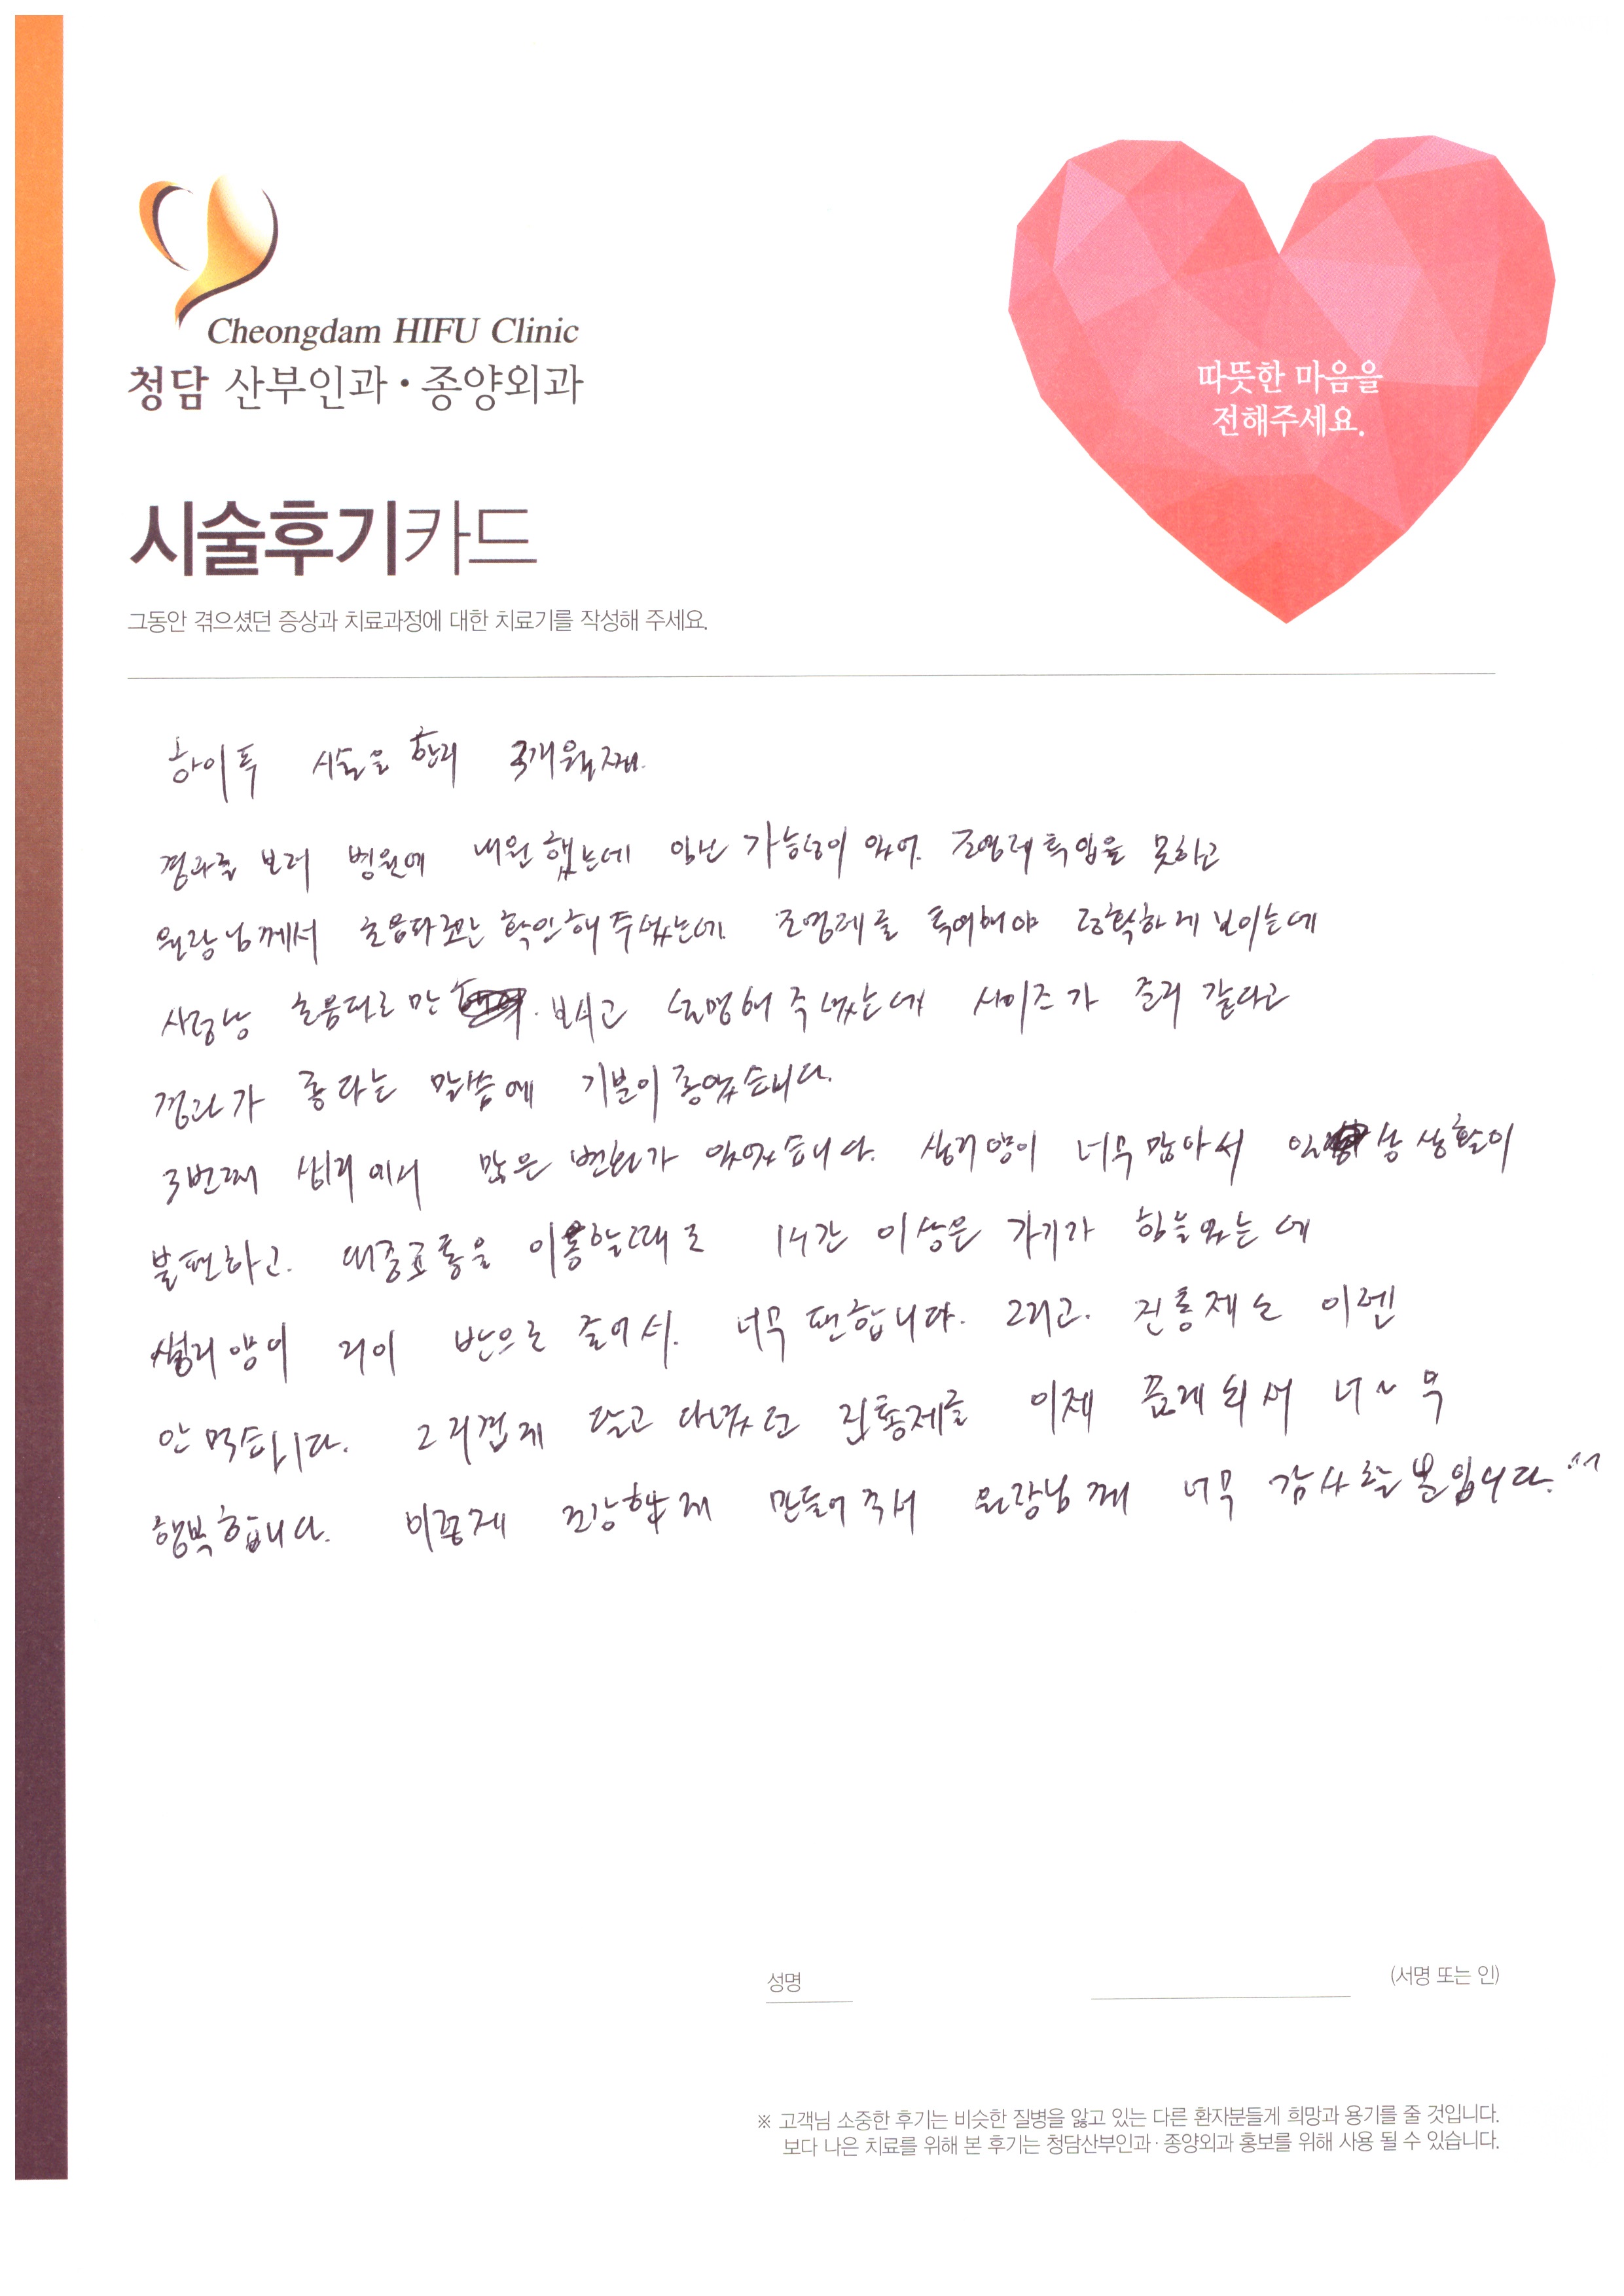 Cheongdam HIFU Clinic
청담 산부인과·종양외과
따뜻한 마음을
전해주세요.
시술후기카드
그동안 겪으셨던 증상과 치료과정에 대한 치료기를 작성해 주세요.
하이푸 시술을 한지 3개월째.
경과를 보러 병원에 내원했는데 임신 가능성이 있어. 조영제 투입을 못하고
원장님께서 초음파로만 확인해주셨는데 조영제를 투여해야 정확하게 보이는데
사정상 초음파로만 보시고 설명해주셨는데 사이즈가 준거 같다고
경과가 좋다는 말씀에 기분이 좋았습니다.
3번째 생리에서 많은 변화가 있었습니다. 생리양이 너무 많아서 일상생활이
불편하고. 대중교통을 이용할때도 1시간 이상은 가기가 힘들었는데
생리양이 거이 반으로 줄어서. 너무 편합니다. 그리고. 진통제는 이젠
안먹습니다. 그 지겹게 달고 다녔던 진통제를 이제 끊게 되서 너~무
행복합니다. 이렇게 건강하게 만들어주셔 원장님께 너무 감사할 뿐입니다.^^
성명
(서명 또는 인)
※ 고객님 소중한 후기는 비슷한 질병을 앓고 있는 다른 환자분들게 희망과 용기를 줄 것입니다.
보다 나은 치료를 위해 본 후기는 청담산부인과·종양외과 홍보를 위해 사용 될 수 있습니다.